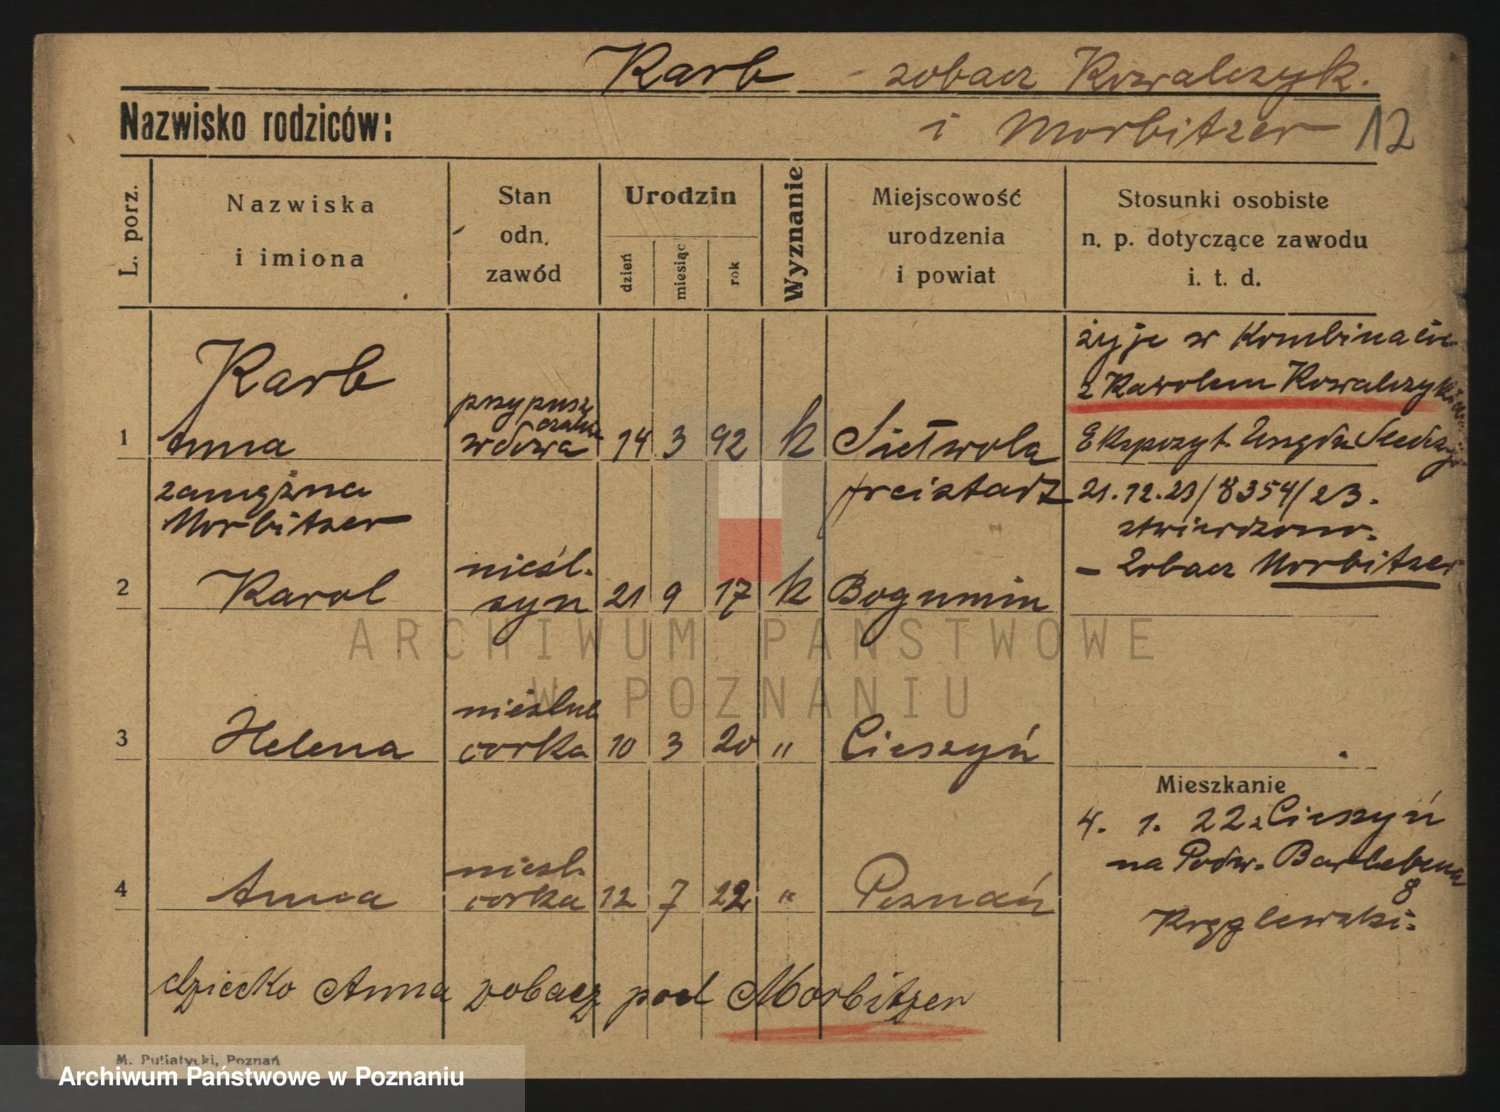 Karb – zobacz Kowalczyk.
Nazwisko rodziców:
i Morbitzer 12
L. porz.
Nazwiska
i imiona
Stan
odn.
zawód
Urodzin
dzień
miesiąc
rok
Wyznanie
Miejscowość
urodzenia
i powiat
Stosunki osobiste
n. p. dotyczące zawodu
i. t. d.
Karb
1 Anna
zamężna
Morbitzer
przypuszczalnie
wdowa
14 3 92 k
freistadt
żyje w Kombinacie
z Karolem Kowalczykiem
Ekspozyt. Urzędu
21.12.23/8354/23.
stwierdzono.
– Zobacz Morbitzer
2 Karol nieśl. syn 21 9 17 k Bogumin
3 Helena nieślub córka 10 3 20 " Cieszyń
Mieszkanie
4. 1. 22 z Cieszyń
na Podw. Barlebena
8
Kręglewski.
4 Anna nieśl. córka 12 7 22 " Poznań
dziecko Anna zobacz pod Morbitzer
M. Putiatycki, Poznań
ARCHIWUM PAŃSTWOWE
W POZNANIU
Archiwum Państwowe w Poznaniu